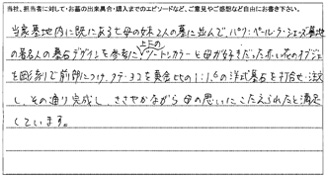 当社、担当者に対して・お墓の出来具合・購入までのエピソードなど、ご意見やご感想など自由にお書き下さい。
当家墓地内に既にある亡母の妹2人の墓に並んで、パリ・ペール・ラ・シェーズ墓地
の著名人の墓石デザインを参考に、上下のツートンカラーと母が好きだった赤い花のオブジェ
を図案して前部につけ、タテ・ヨコを黄金比の1:1.6の洋式墓石を打合せ・注文
し、その通り完成し、ささやかながら母の思いにこたえられたと満足
しています。